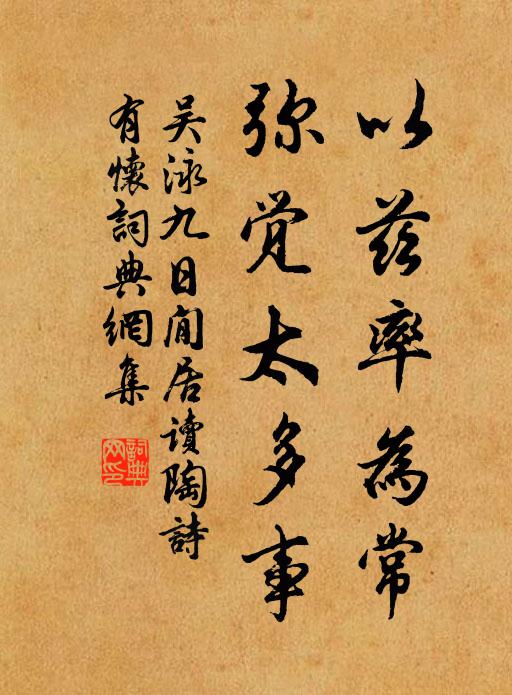 以茲率為常
弥觉太多事
吴泳九日閒居读陶詩
有懷詞典網集
詞典网印